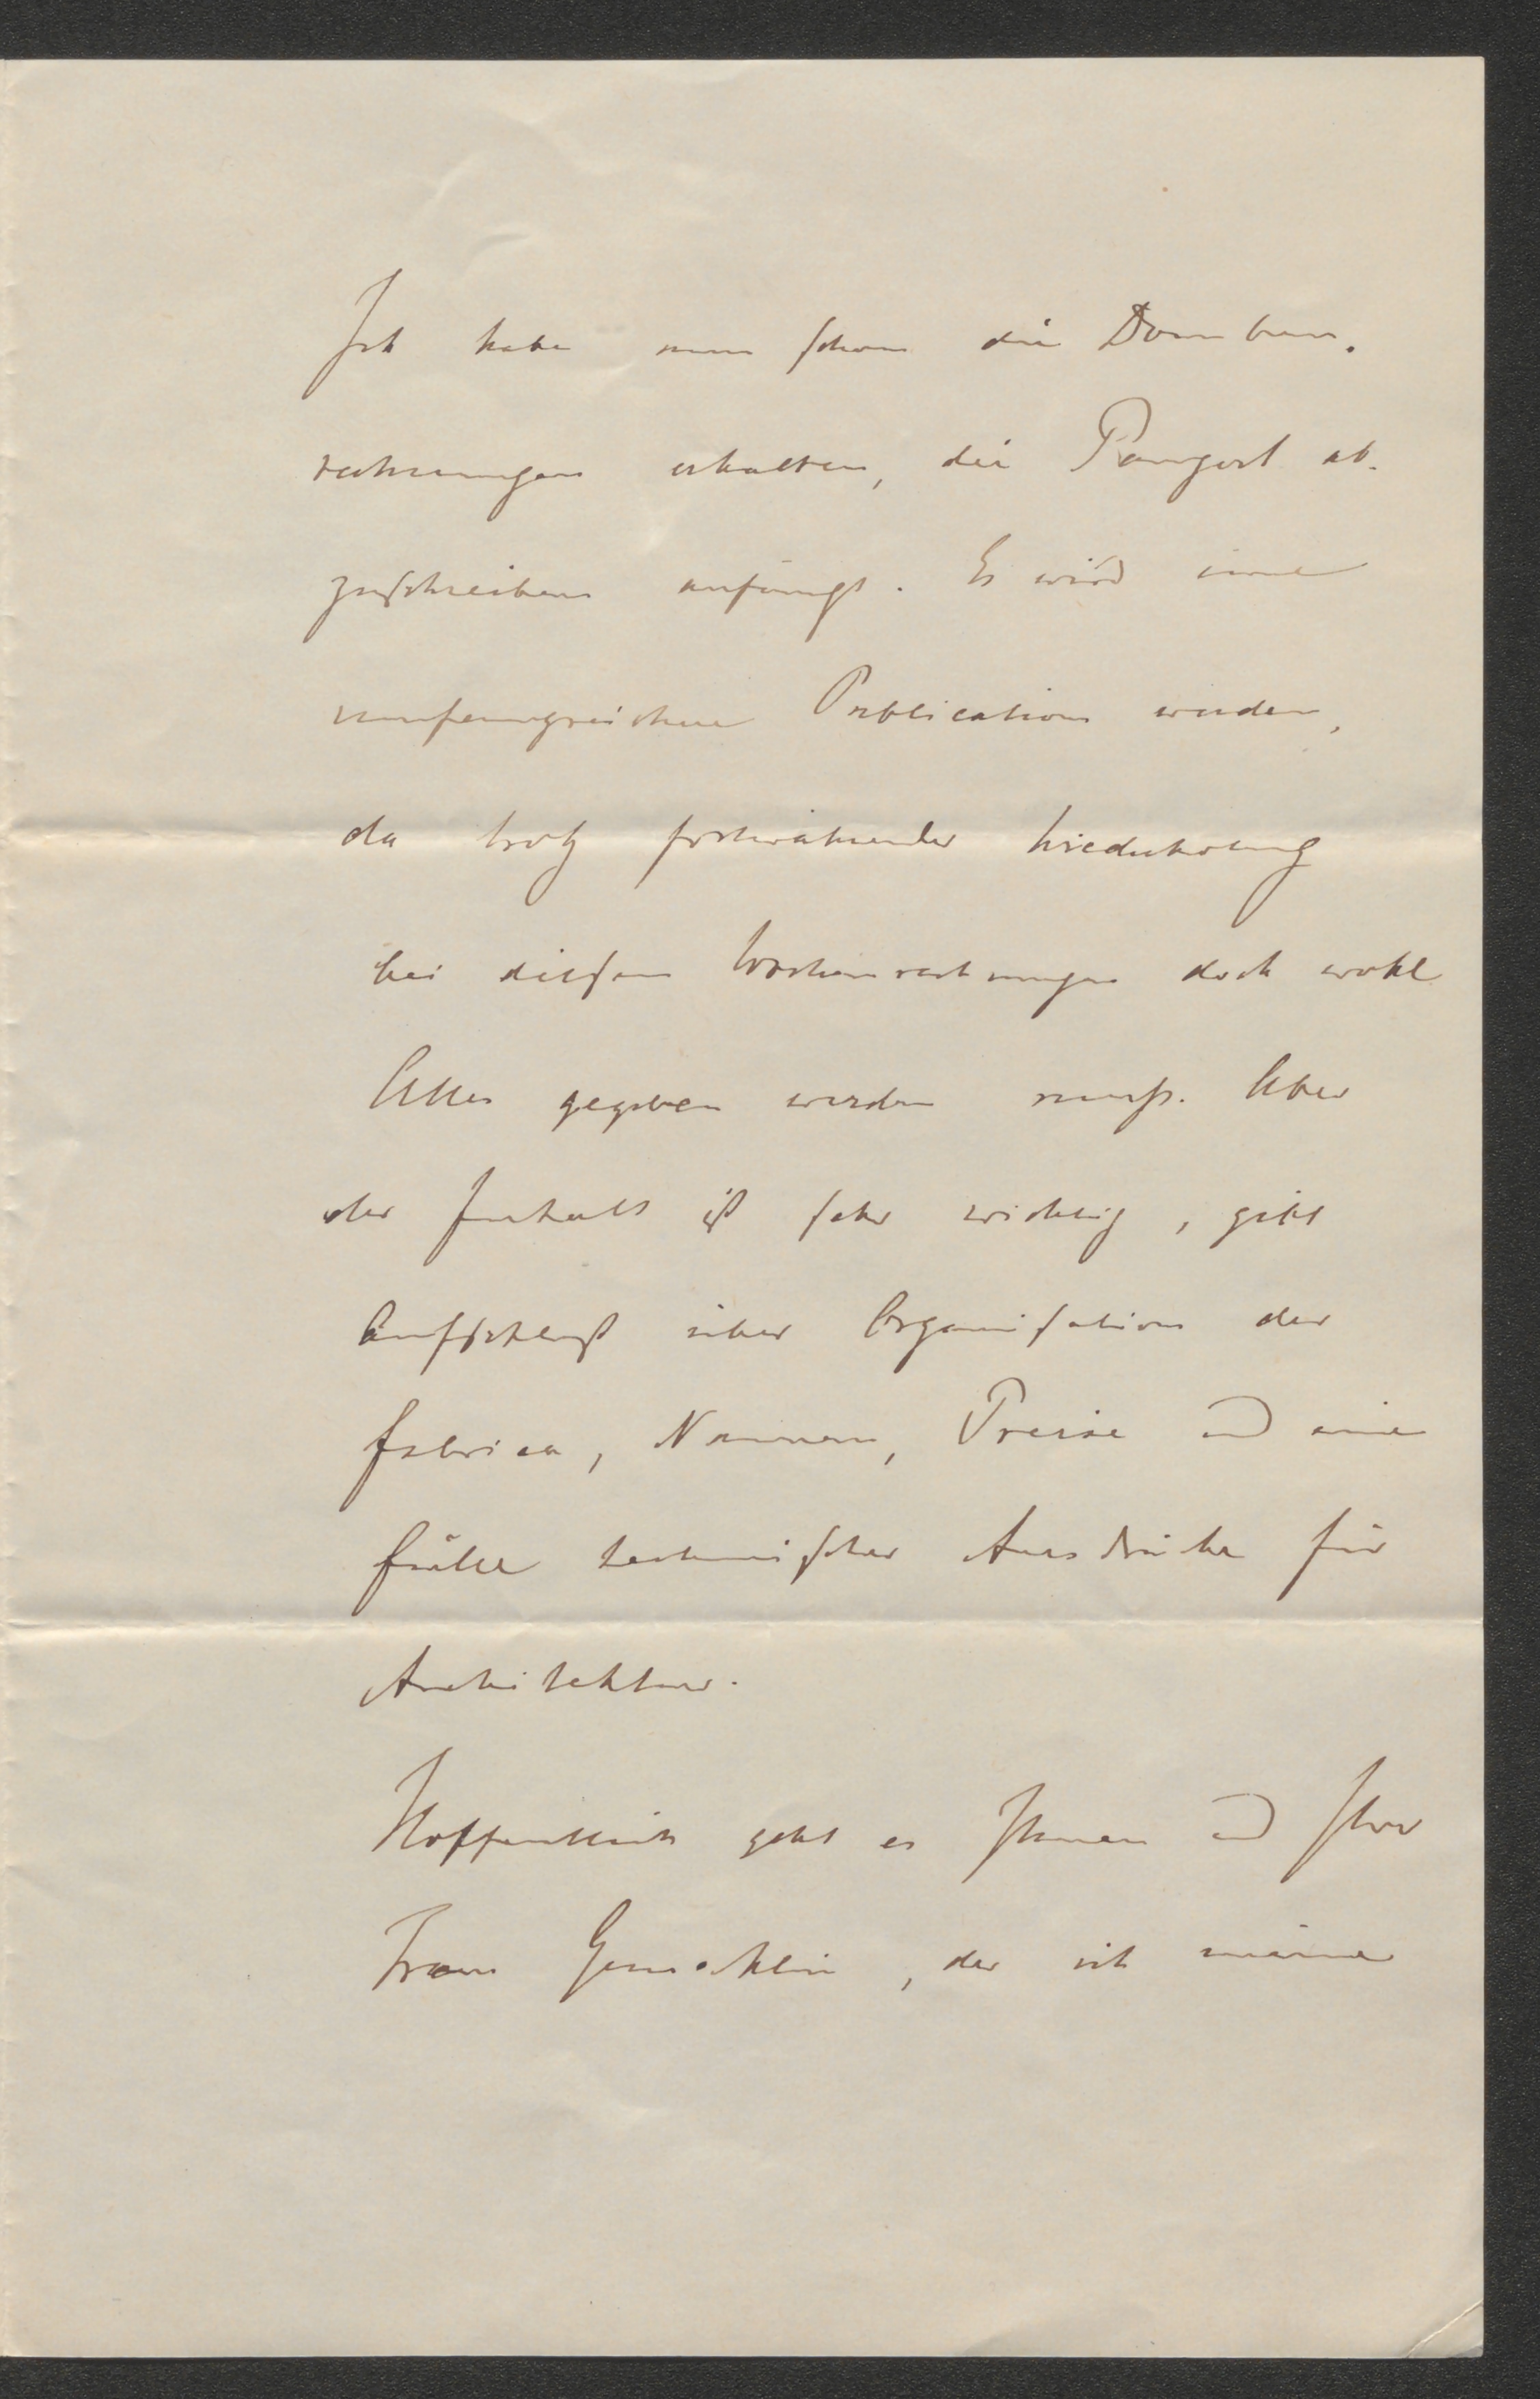 Ich habe nun schon die Dombau-
rechnungen erhalten, die Pangerl ab-
zuschreiben anfängt. Es wird eine
umfangreichere Publication werden,
da trotz fortwährender Wiederholung
bei diesen Wochenrechnungen doch wohl
Alles gegeben werden muß. Aber
der Inhalt ist sehr wichtig, gibt
Aufschluß über Organisation der
fabrica, Namen, Preise und eine
fülle technischer Ausdrücke für
Architektur.
Hoffentlich geht es Ihnen und Ihrer
Frau Gemahlin, der ich meine